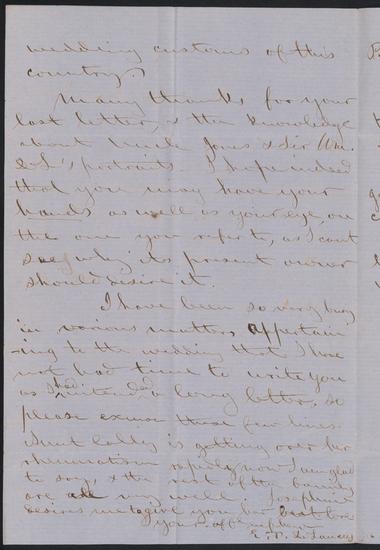 wedding customs of this
country.
Many thanks for your
last letter, & the knowledge
about Uncle Jones & Sir Wm.
& L's, portraits I hope indeed
that you may have your
hands as well as your eye, on
the one you refer to, as I cant
see why its present owner
should desire it.
I have been so very busy
in various matters appertain
-ing to the wedding that I have
not had time to write you
as I had intended a long letter, so
please excuse these few lines.
Aunt is getting over her
rheumatism rapidly now I am glad
to say, & the rest of the family
are all very well. Josephine
desires me to give you her best love
Your aff nephew
E. F. de Lancey